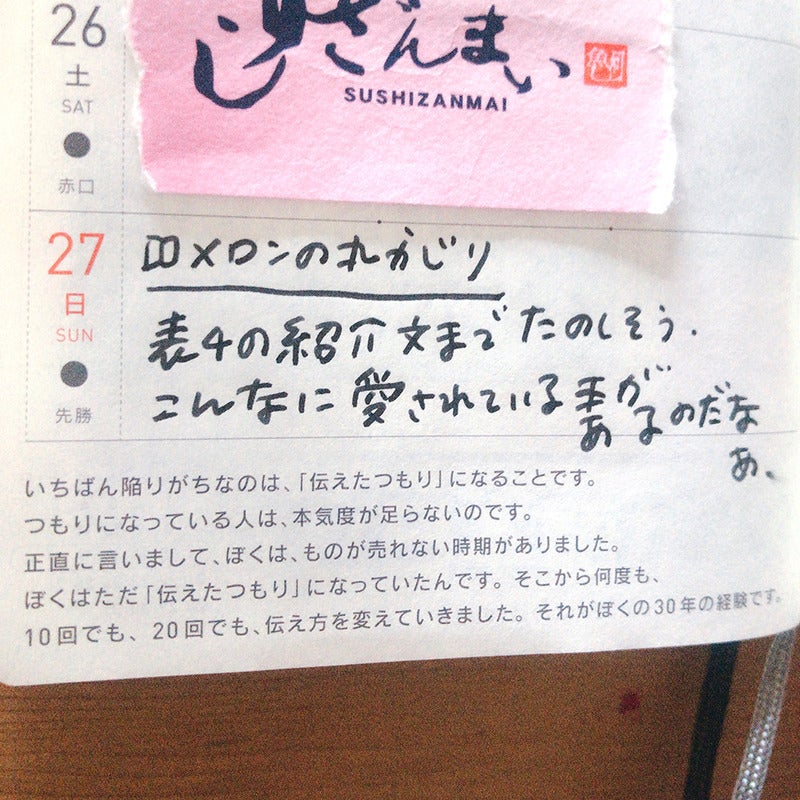 26
土
SAT
赤口
ざんまい
SUSHIZANMAI
27
日
SUN
先勝
メロンの丸かじり
表4の紹介文までたのしそう.
こんなに愛されている
がのだな
あ、
いちばん陥りがちなのは、「伝えたつもり」になることです。
つもりになっている人は、本気度が足らないのです。
正直に言いまして、ぼくは、ものが売れない時期がありました。
ぼくはただ「伝えたつもり」になっていたんです。そこから何度も、
10回でも、20回でも、伝え方を変えていきました。それがぼくの30年の経験です。